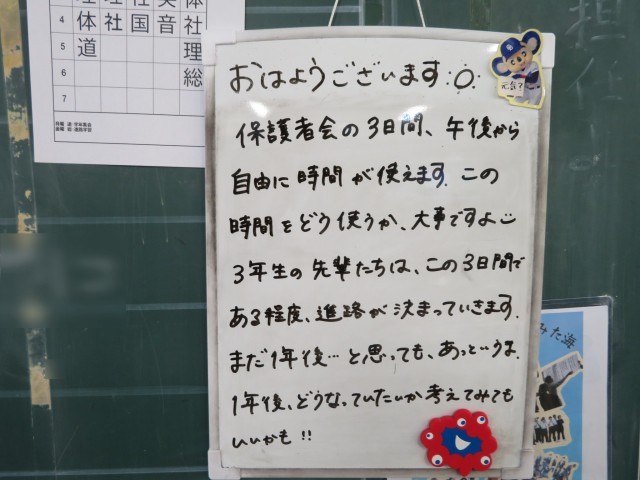 おはようございます
元気?
保護者会の3日間、午後から
自由に時間が使えます。この
時間をどう使うか、大事ですよ
3年生の先輩たちは、この3日間で
ある程度、進路が決まっていきます。
まだ1年後…と思っても、あっという間。
1年後、どうなっていたいか考えてみても
いいかも!!
4 保 社 国 音 社
5 体 理
6 道 総
7
みた海